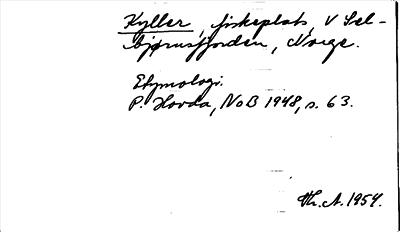 Kyller, fiskeplats, V Sel-
bjørnsfjorden, Norge.
Etymologi.
P. Hovda, NoB 1948, s. 63.
Th. A. 1954.